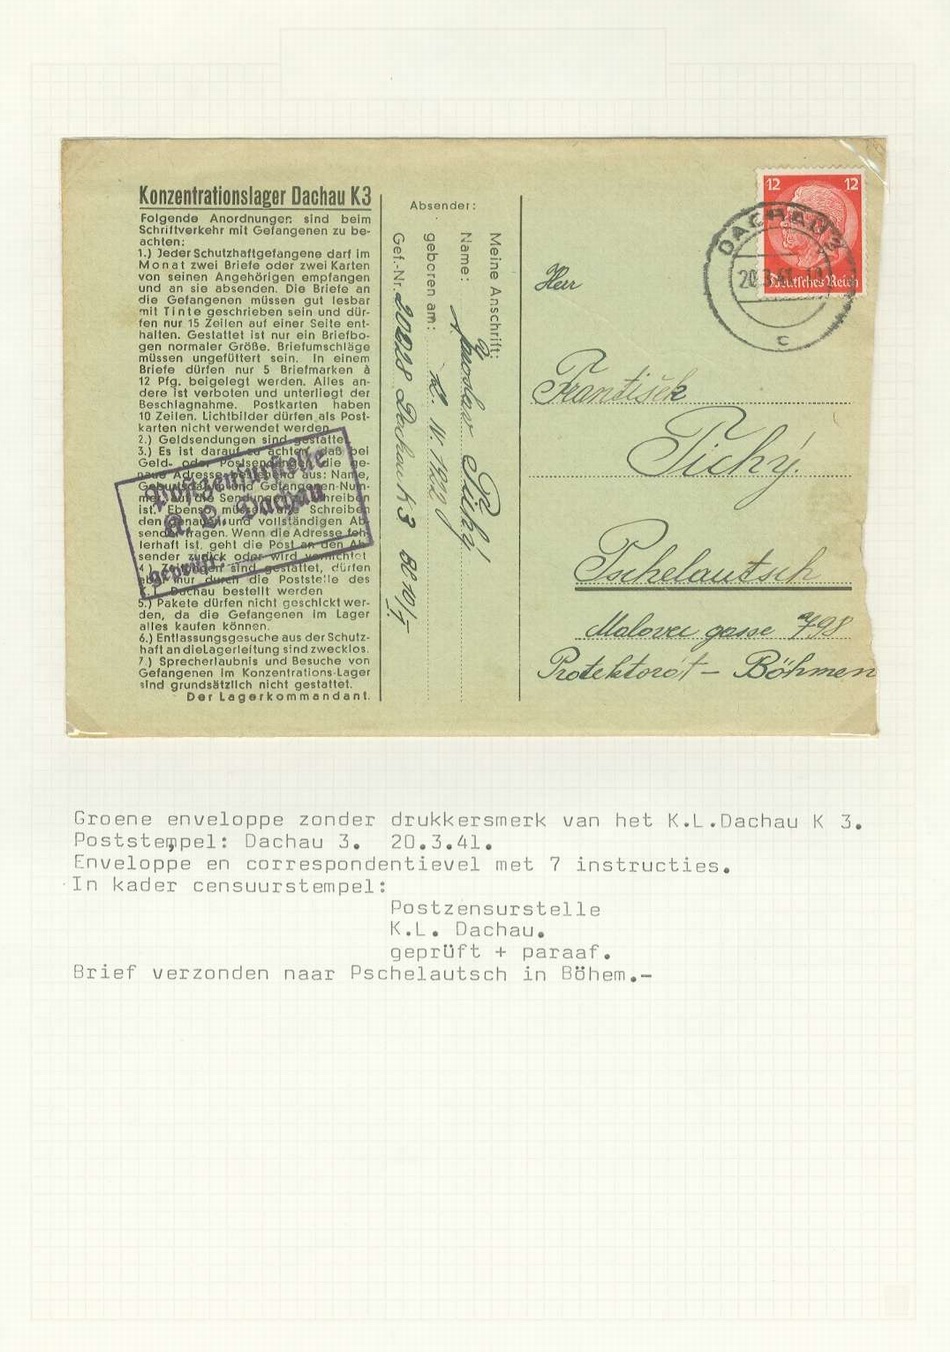 Konzentrationslager Dachau K3
Folgende Anordnungen sind beim
Schriftverkehr mit Gefangenen zu be-
achten:
1.) Jeder Schutzhaftgefangene darf im
Monat zwei Briefe oder zwei Karten
von seinen Angehörigen empfangen
und an sie absenden. Die Briefe an
die Gefangenen müssen gut lesbar
mit Tinte geschrieben sein und dür-
fen nur 15 Zeilen auf einer Seite ent-
halten. Gestattet ist nur ein Briefbo-
gen normaler Größe. Briefumschläge
müssen ungefüttert sein. In einem
Briefe dürfen nur 5 Briefmarken à
12 Pfg. beigelegt werden. Alles an-
dere ist verboten und unterliegt der
Beschlagnahme. Postkarten haben
10 Zeilen. Lichtbilder dürfen als Post-
karten nicht verwendet werden.
2.) Geldsendungen sind gestattet.
3.) Es ist darauf zu achten, daß bei
Geld- oder Postsendungen die ge-
naue Adresse, bestehend aus: Name,
Geburtsdatum und Gefangenen-Num-
mer, auf die Sendungen zu schreiben
ist. Ebenso müssen alle Schreiben
den genauen und vollständigen Ab-
sender tragen. Wenn die Adresse feh-
lerhaft ist, geht die Post an den Ab-
sender zurück oder wird vernichtet.
4.) Zeitungen sind gestattet, dürfen
aber nur durch die Poststelle des
K.L. Dachau bestellt werden
5.) Pakete dürfen nicht geschickt wer-
den, da die Gefangenen im Lager
alles kaufen können.
6.) Entlassungsgesuche aus der Schutz-
haft an die Lagerleitung sind zwecklos.
7.) Sprecherlaubnis und Besuche von
Gefangenen im Konzentrations-Lager
sind grundsätzlich nicht gestattet.
Der Lagerkommandant.
Postzensurstelle
K. L. Dachau
geprüft:
Absender:
Meine Anschrift:
Name: Jaroslav Tichý
geboren am: 1922
Gef.-Nr. 20828 Dachau K 3
12 12
Deutsches Reich
DACHAU 3
20.3.41
c
Herr
František
Tichý.
Pschelautsch
Malovec gasse 798
Protektorát – Böhmen
Groene enveloppe zonder drukkersmerk van het K.L.Dachau K 3.
Poststempel: Dachau 3. 20.3.41.
Enveloppe en correspondentievel met 7 instructies.
In kader censuurstempel:
Postzensurstelle
K.L. Dachau.
geprüft + paraaf.
Brief verzonden naar Pschelautsch in Böhem.-